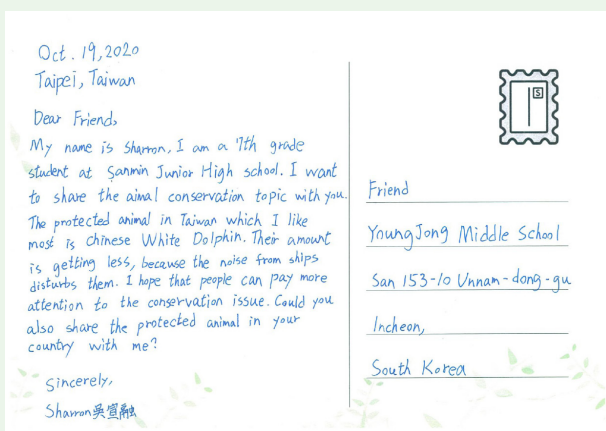 Oct. 19, 2020
Taipei, Taiwan
Dear Friend,
My name is Sharron, I am a 7th grade
student at Sanmin Junior High school. I want
to share the aimal conservation topic with you.
The protected animal in Taiwan which I like
most is Chinese White Dolphin. Their amount
is getting less, because the noise from ships
disturbs them. I hope that people can pay more
attention to the conservation issue. Could you
also share the protected animal in your
country with me?
Sincerely,
Sharron吳宣融
S
Friend
YoungJong Middle School
San 153-10 Unnam-dong-gu
Incheon,
South Korea